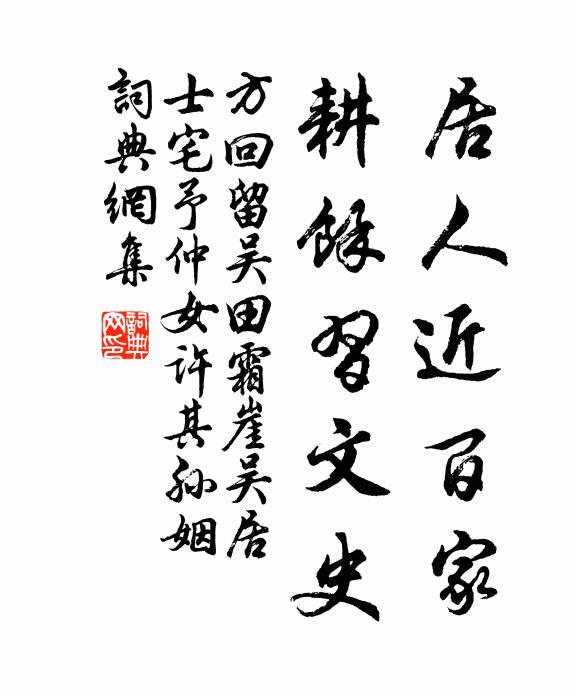 居人近百家
耕餘習文史
方回留吴田霜崖吴居
士宅予仲女许其孙姻
詞典網集
詞典网印